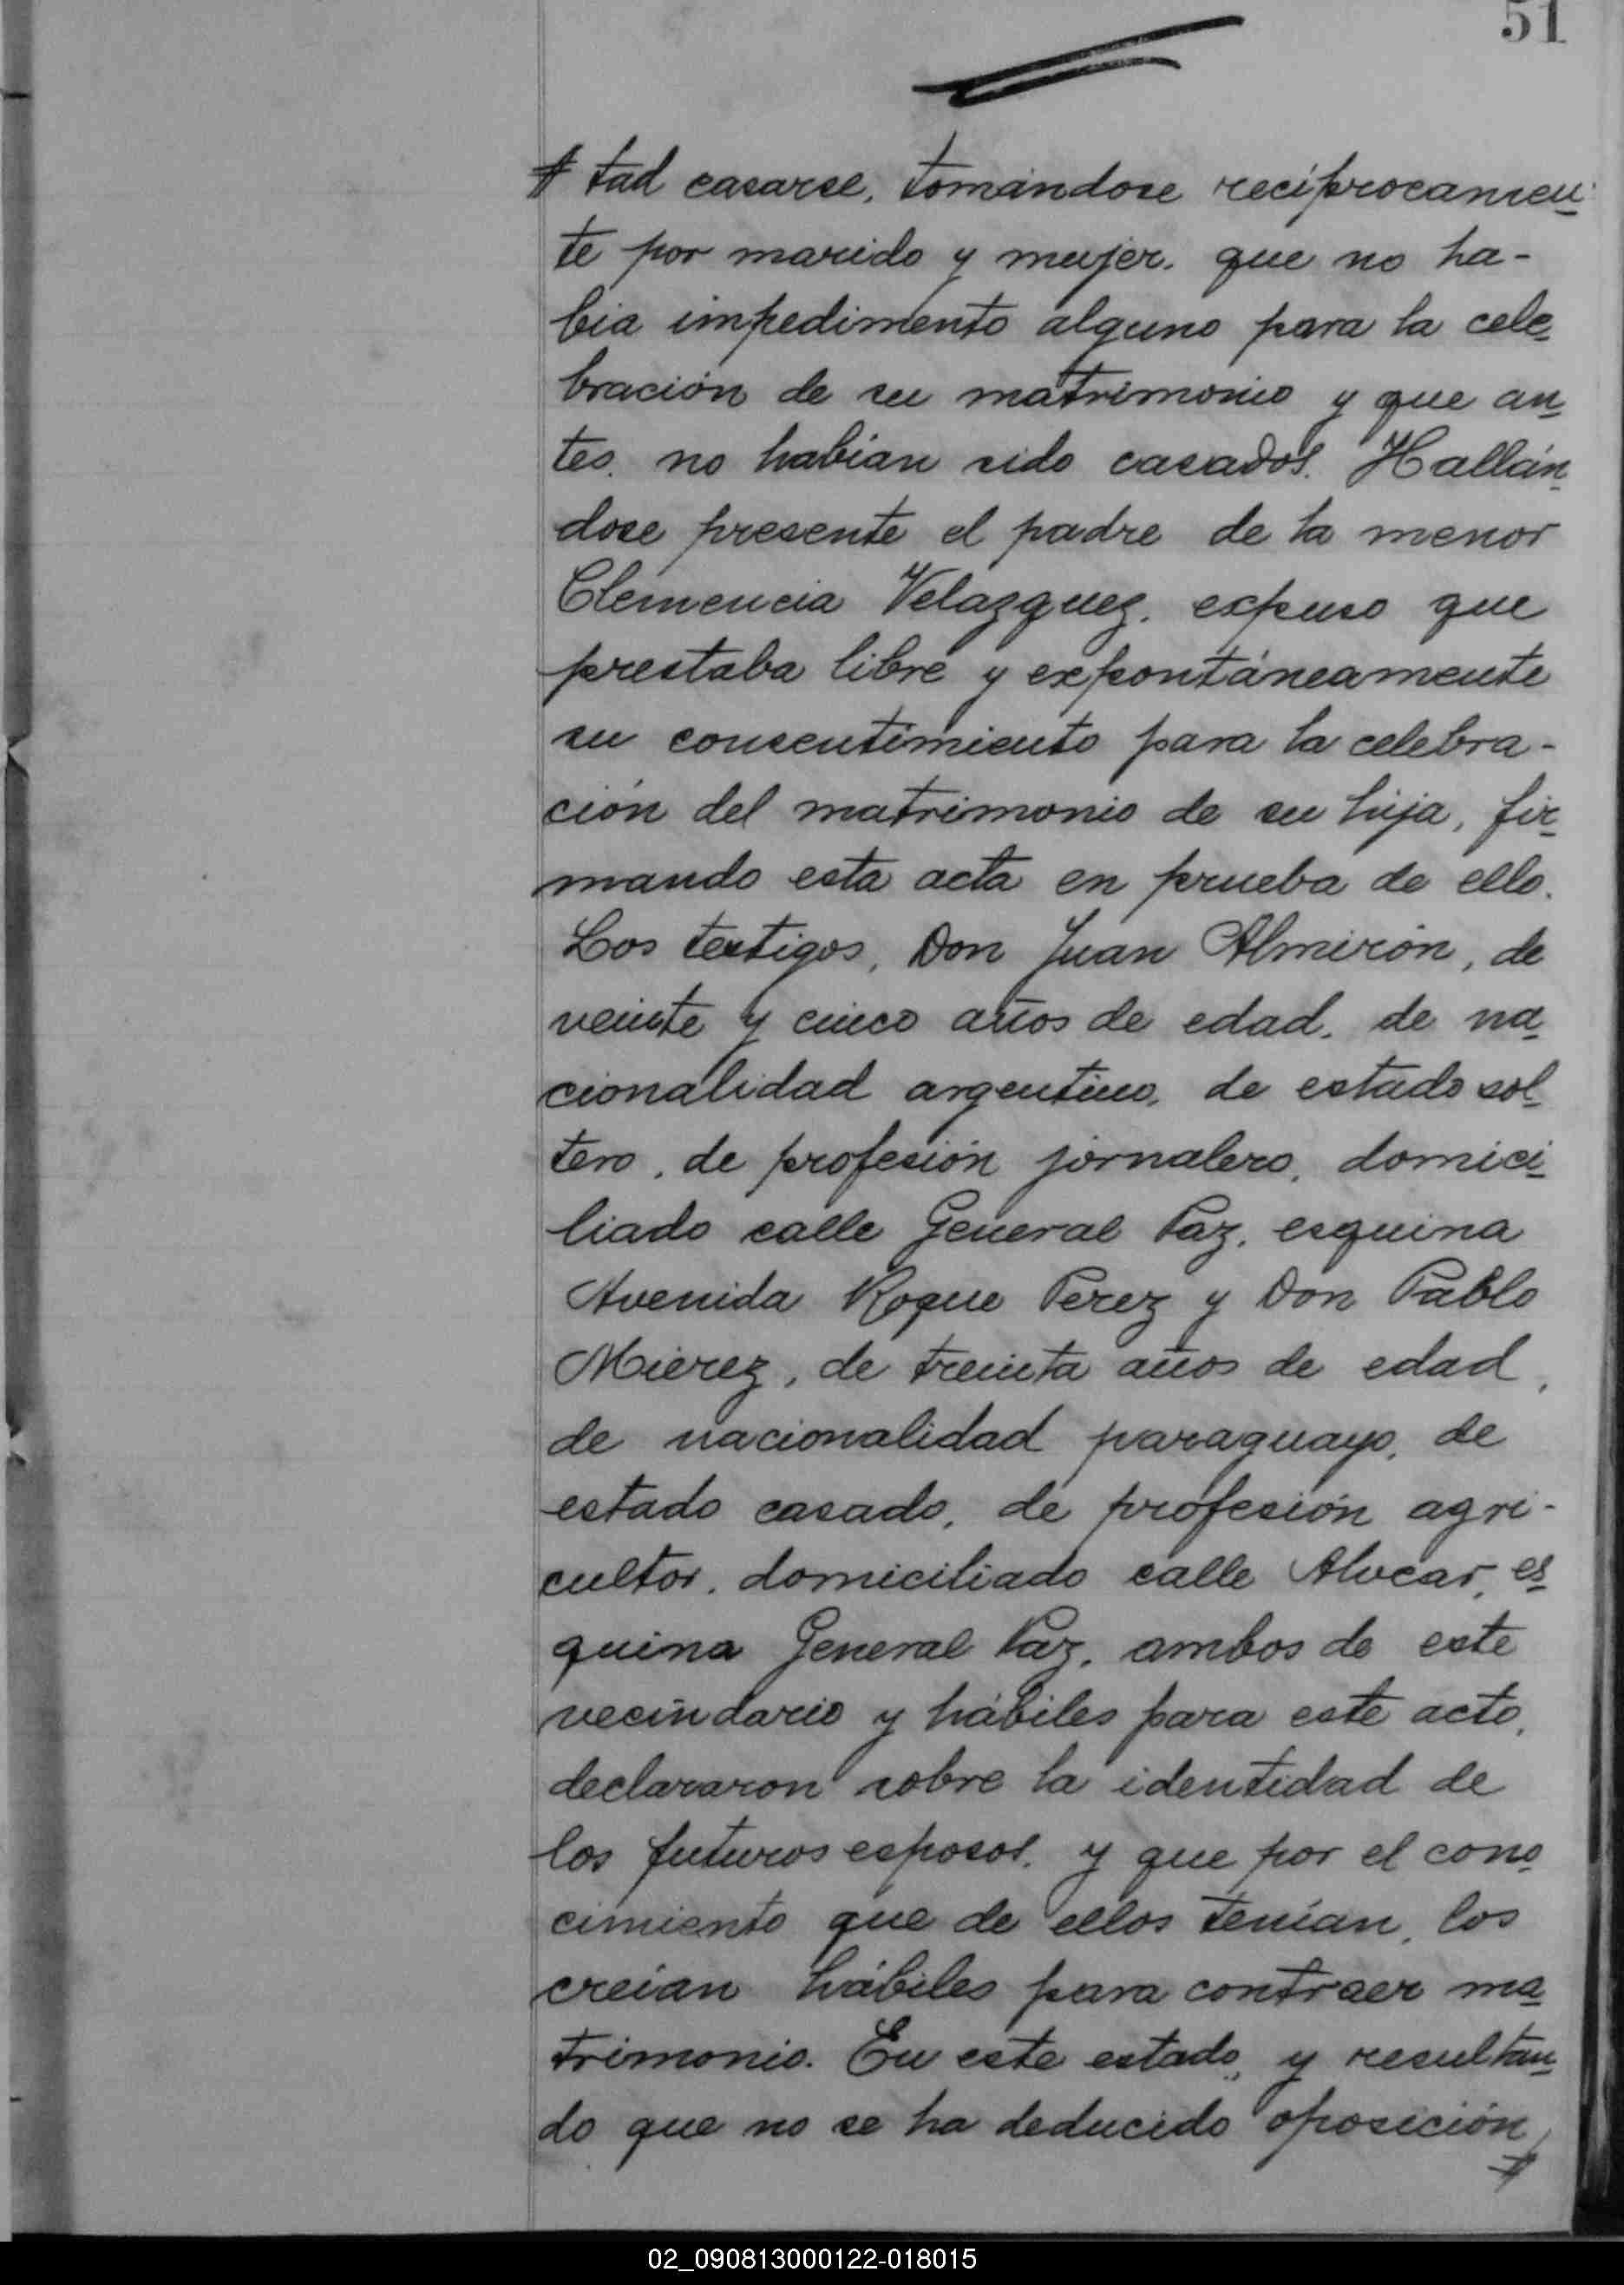 51
tad casarse, tomándose recíprocamen-
te por marido y mujer, que no ha-
bia impedimento alguno para la cele-
bración de su matrimonio y que an-
tes no habían sido casados. Hallán-
dose presente el padre de la menor
Clemencia Velazquez, expuso que
prestaba libre y expontáneamente
su consentimiento para la celebra-
ción del matrimonio de su hija, fir-
mando esta acta en prueba de ello.
Los testigos, Don Juan Almirón, de
veinte y cinco años de edad, de na-
cionalidad argentino, de estado sol-
tero, de profesión jornalero, domici-
liado calle General Paz, esquina
Avenida Roque Perez y Don Pablo
Mierez, de treinta años de edad,
de nacionalidad paraguayo, de
estado casado, de profesión agri-
cultor, domiciliado calle Alvear, es-
quina General Paz, ambos de este
vecindario y hábiles para este acto,
declararon sobre la identidad de
los futuros esposos, y que por el cono-
cimiento que de ellos tenían, los
creían hábiles para contraer ma-
trimonio. En este estado, y resultan-
do que no se ha deducido oposición
02_090813000122-018015